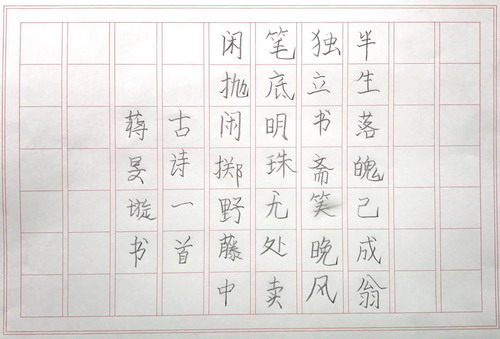 半生落魄已成翁
独立书斋笑晚风
笔底明珠无处卖
闲抛闲掷野藤中
古诗一首
蒋旻璇书